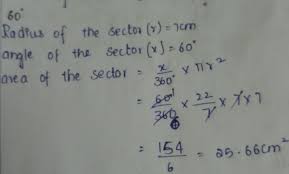 60°
Radius of the sector (r) = 7cm
angle of the sector (x) = 60°
area of the sector = x/360° × πr²
= 60°/360 × 22/7 × 7 × 7
6
= 154/6 = 25.66cm²